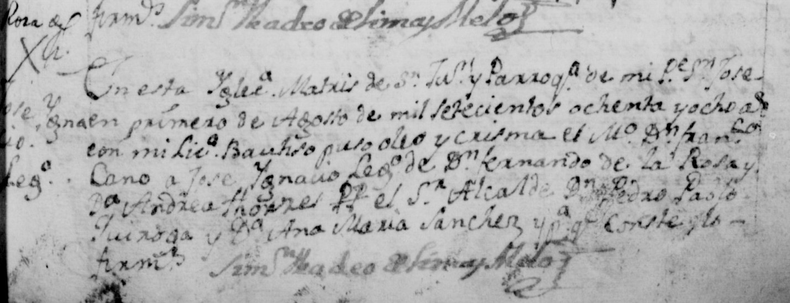 Rosa &
firmé Simn Thadeo de Lima y Melo
En esta Yglea. Matris de Sn. Jun. y Parroqa. de mi Pe. Sn. Jose
Jose Ygna en primero de Agosto de mil setecientos ochenta y ocho a
cio. con mi Lica. Bautiso puso oleo y crisma el Mo. Dn. franco
Lego. Lano a Jose Ygnacio Lego. de Dn. fernando de la Rosa y
Da. Andrea Pp. el Sr. Alcalde Dn. Pedro Pablo
Quiroga y Da. Ana Maria Sanchez y pa. qe. Conste lo
firmé Simn Thadeo de Lima y Melo